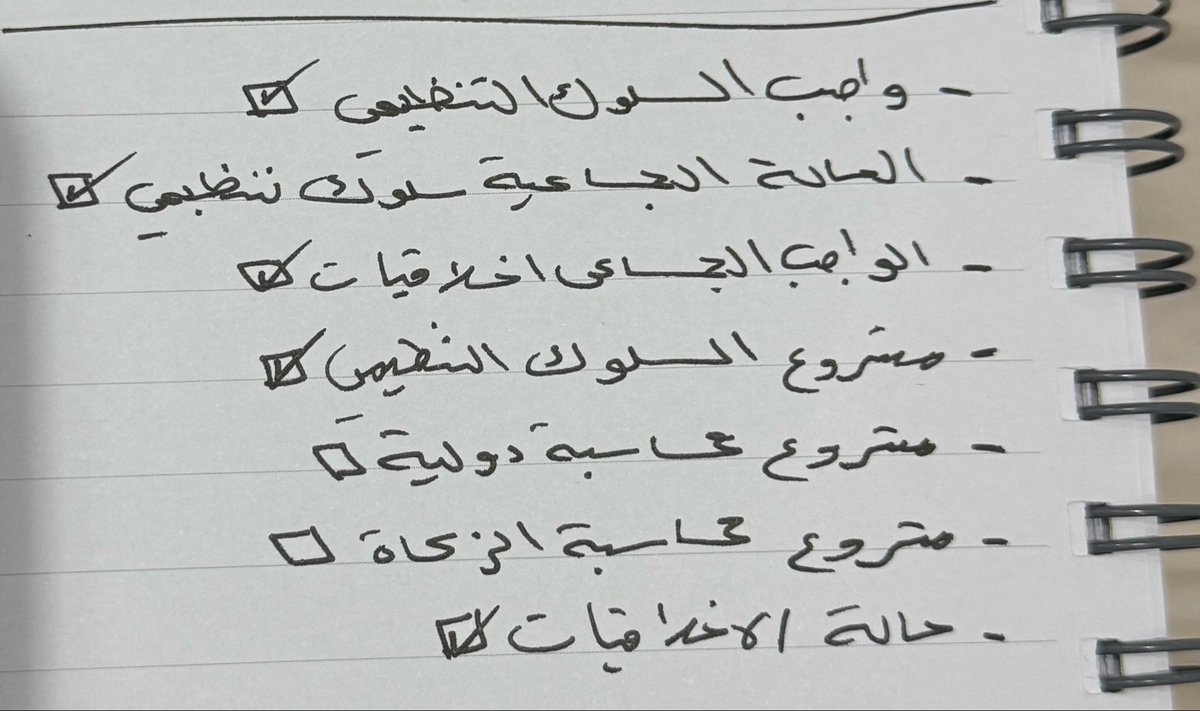 - واجب السلوك التنظيمي ☑
- الحالة الجماعية سلوك تنظيمي ☑
- الواجب الجماعي اخلاقيات ☑
- مشروع السلوك التنظيمي ☑
- مشروع محاسبة دولية ☐
- مشروع محاسبة الزكاة ☐
- حالة الاخلاقيات ☑